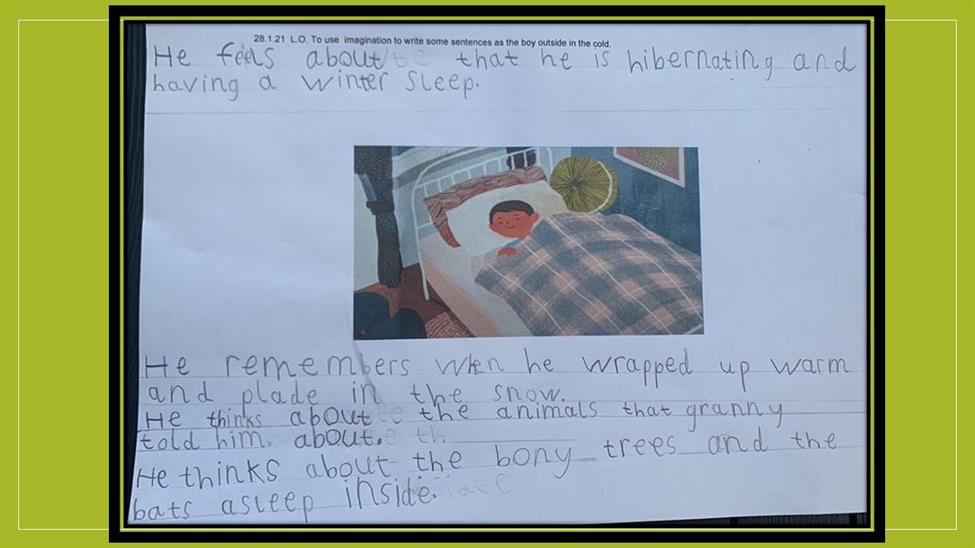 28.1.21 L.O. To use imagination to write some sentences as the boy outside in the cold.
He feels about that he is hibernating and
having a winter sleep.
He remembers when he wrapped up warm
and plade in the snow.
He thinks about the animals that granny
told him about.
He thinks about the bony trees and the
bats asleep inside.